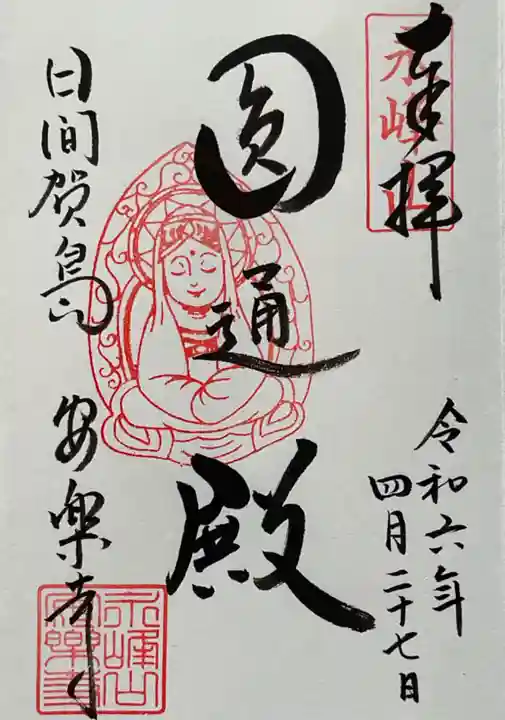 奉拝
永峰山
令和六年
四月二十七日
圓通殿
日間賀島 安楽寺
永峰山
安樂寺